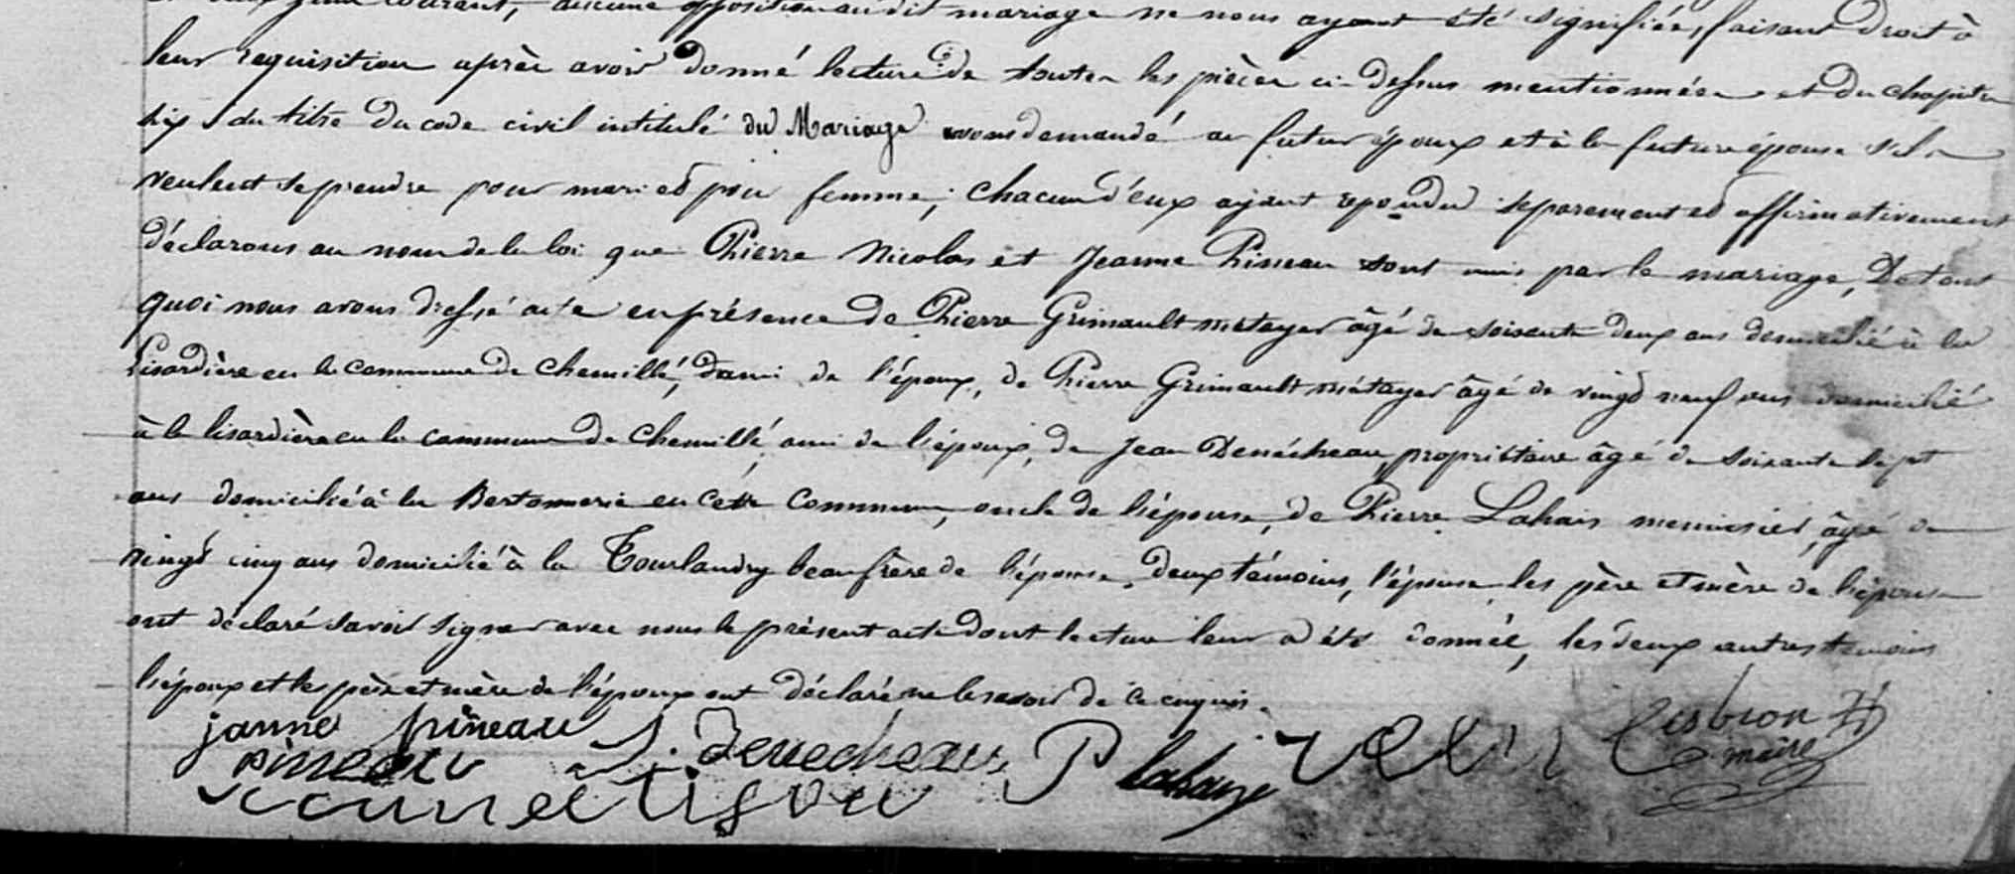 courant, aucune opposition au dit mariage ne nous ayant été signifiée, faisant droit à
leur requisition après avoir donné lecture de toutes les pièces ci-dessus mentionnées et du chapitre
six du titre du code civil intitulé du Mariage avons demandé au futur époux et à la future épouse s'ils
veulent se prendre pour mari et pour femme; chacun d'eux ayant repondu separement et affirmativement
déclarons au nom de la loi que Pierre Nicolas et Jeanne Pineau sont unis par le mariage, De tout
quoi nous avons dressé acte en présence de Pierre Grimault métayer âgé de soixante deux ans domicilié à la
Lisardière en la commune de Chemillé, d'ami de l'époux, de Pierre Grimault métayer âgé de vingt neuf ans domicilié
à la lisardière en la commune de Chemillé, ami de l'époux, de Jean Denécheau, propriétaire âgé de soixante sept
ans domicilié à la en cette commune, oncle de l'épouse, de Pierre Lahais menuisier, âgé de
vingt cinq ans domicilié à la Tourlandry beau frère de l'épouse. deux témoins, l'épouse, les père et mère de l'épouse
ont déclaré savoir signer avec nous le présent acte dont lecture leur a été donnée, les deux autres temoins
l'époux et les père et mère de l'époux ont déclaré ne le savoir de ce enquis.
janne pineau J. Denecheau P lahaye maire
pineau